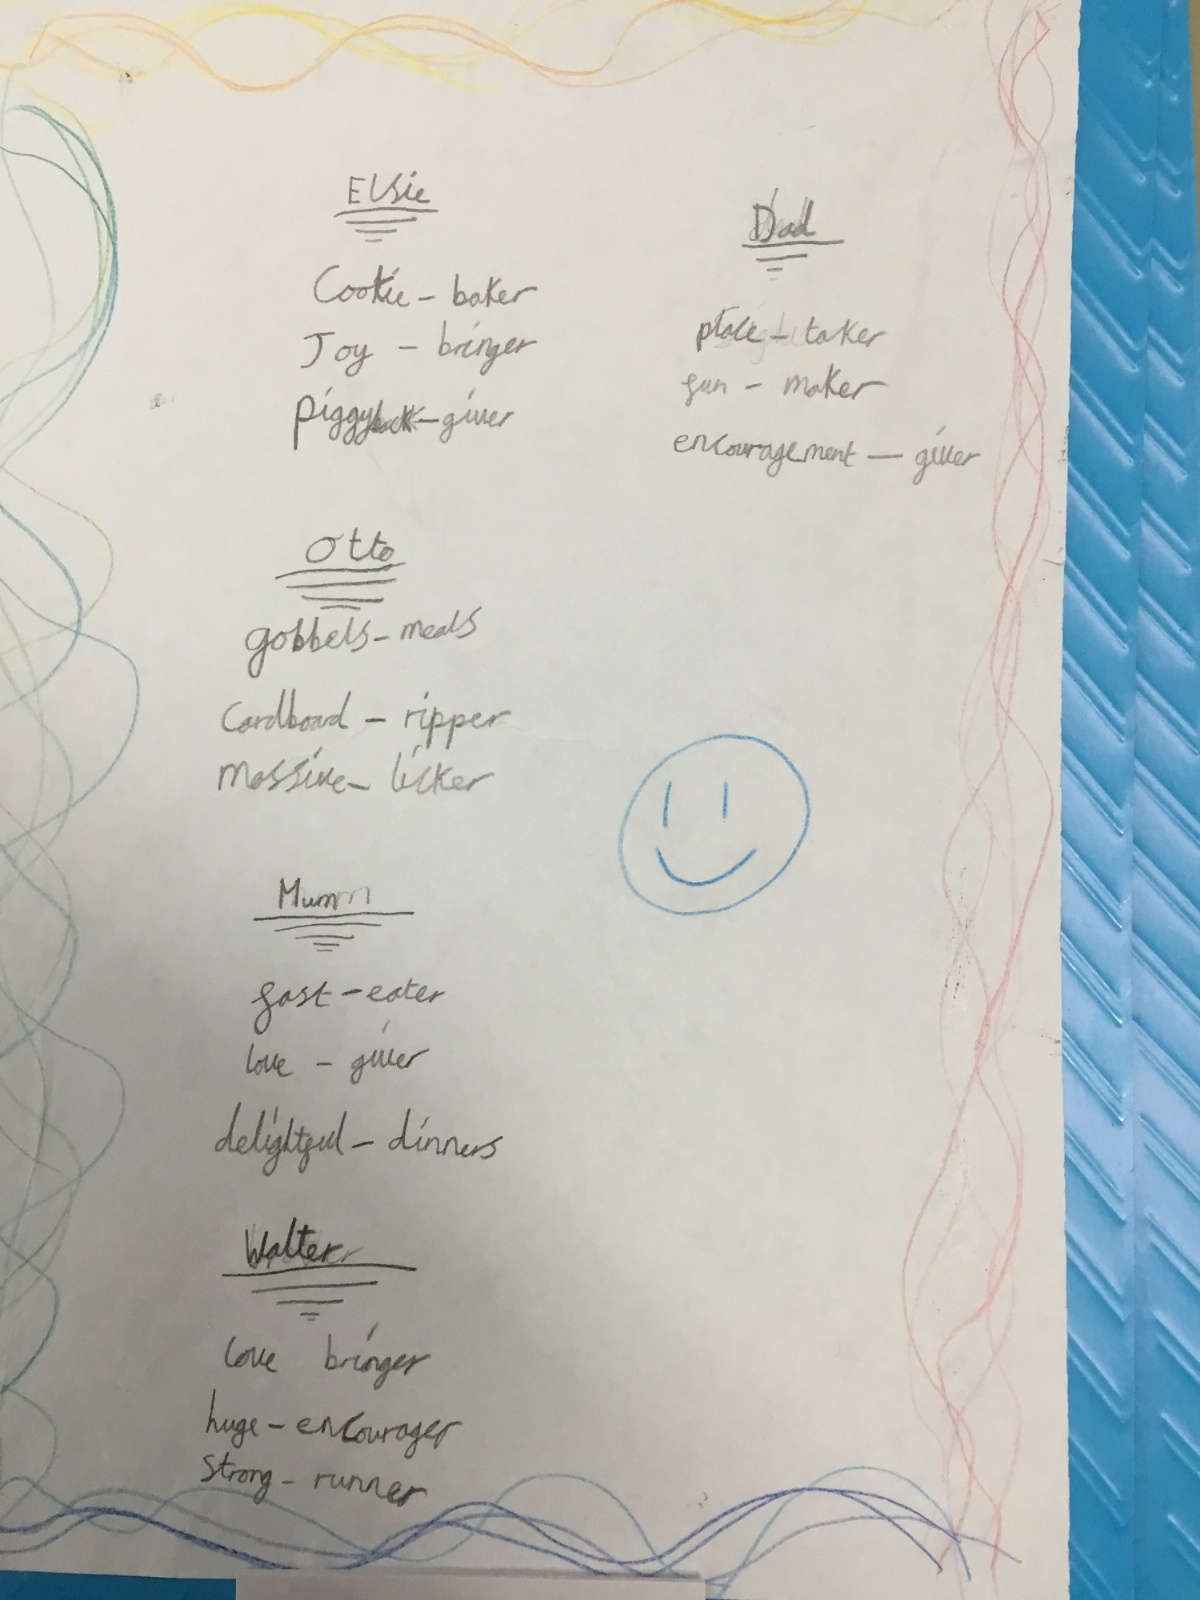 Elsie
Cookie - baker
Joy - bringer
piggyback - giver
Dad
place - taker
fun - maker
encouragement - giver
Otto
gobbels - meals
Cardboard - ripper
Massive - licker
Mum
fast - eater
love - giver
delightful - dinners
Walter
love bringer
huge - encourager
strong - runner